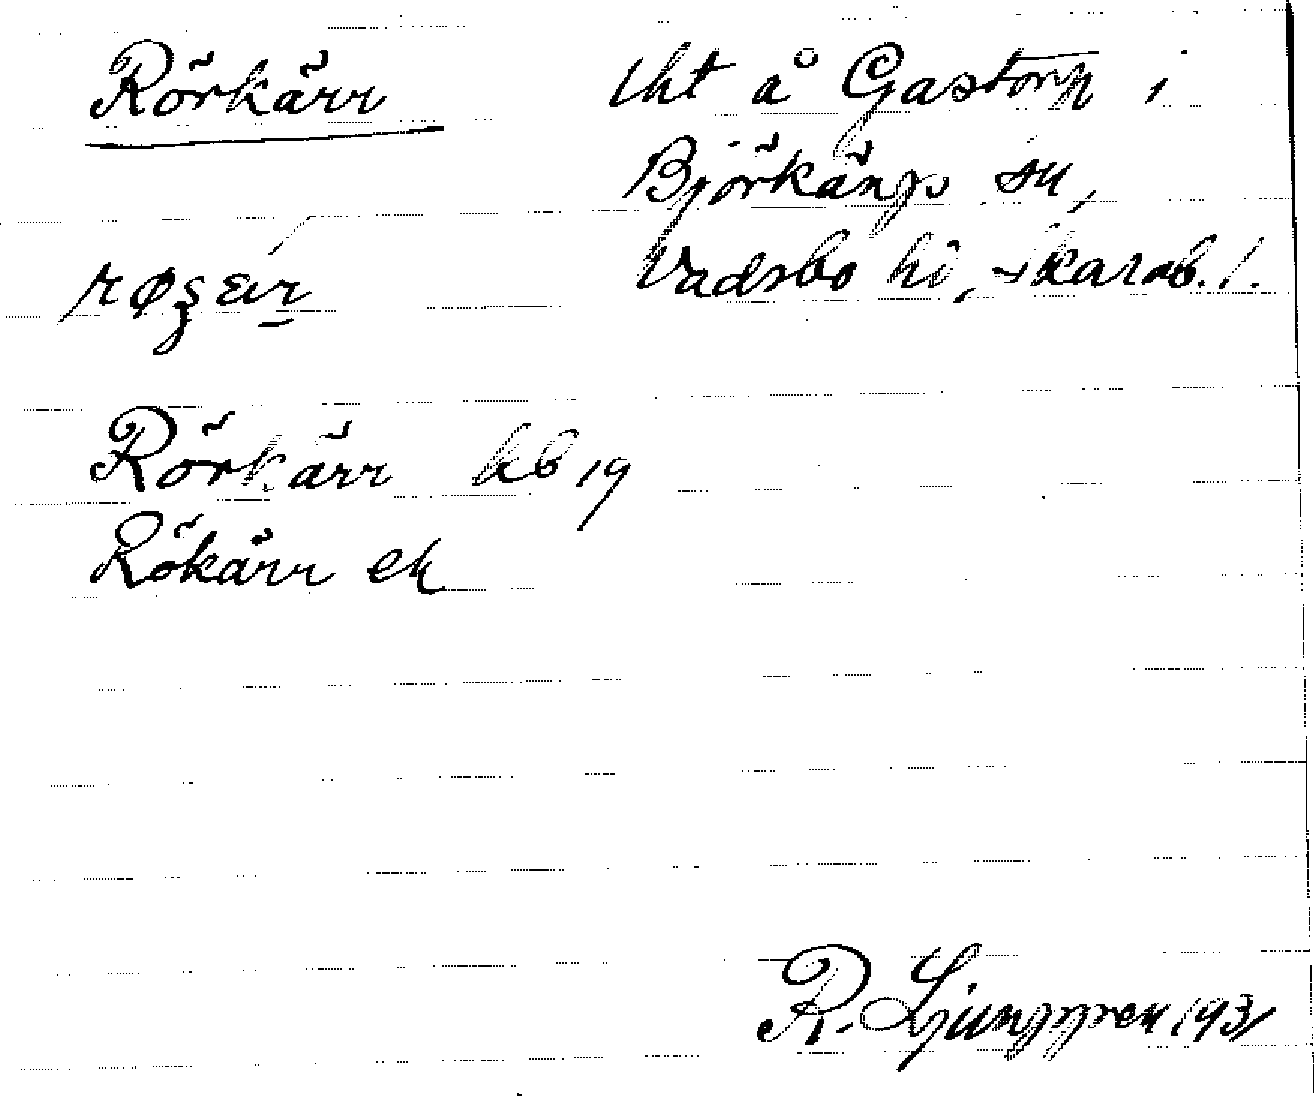 Rörkärr
lht å Gastorp i
Björkängs sn,
Vadsbo hd, Skarab. l.
Rörkärr kb 19
Rökärr ek
R. Ljunggren 1931